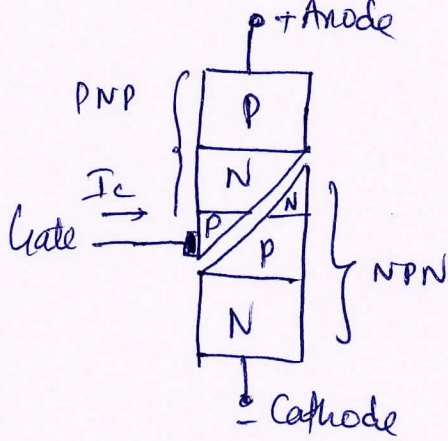 + Anode
PNP
P
N
Ic
N
Gate
P
P
NPN
N
- Cathode